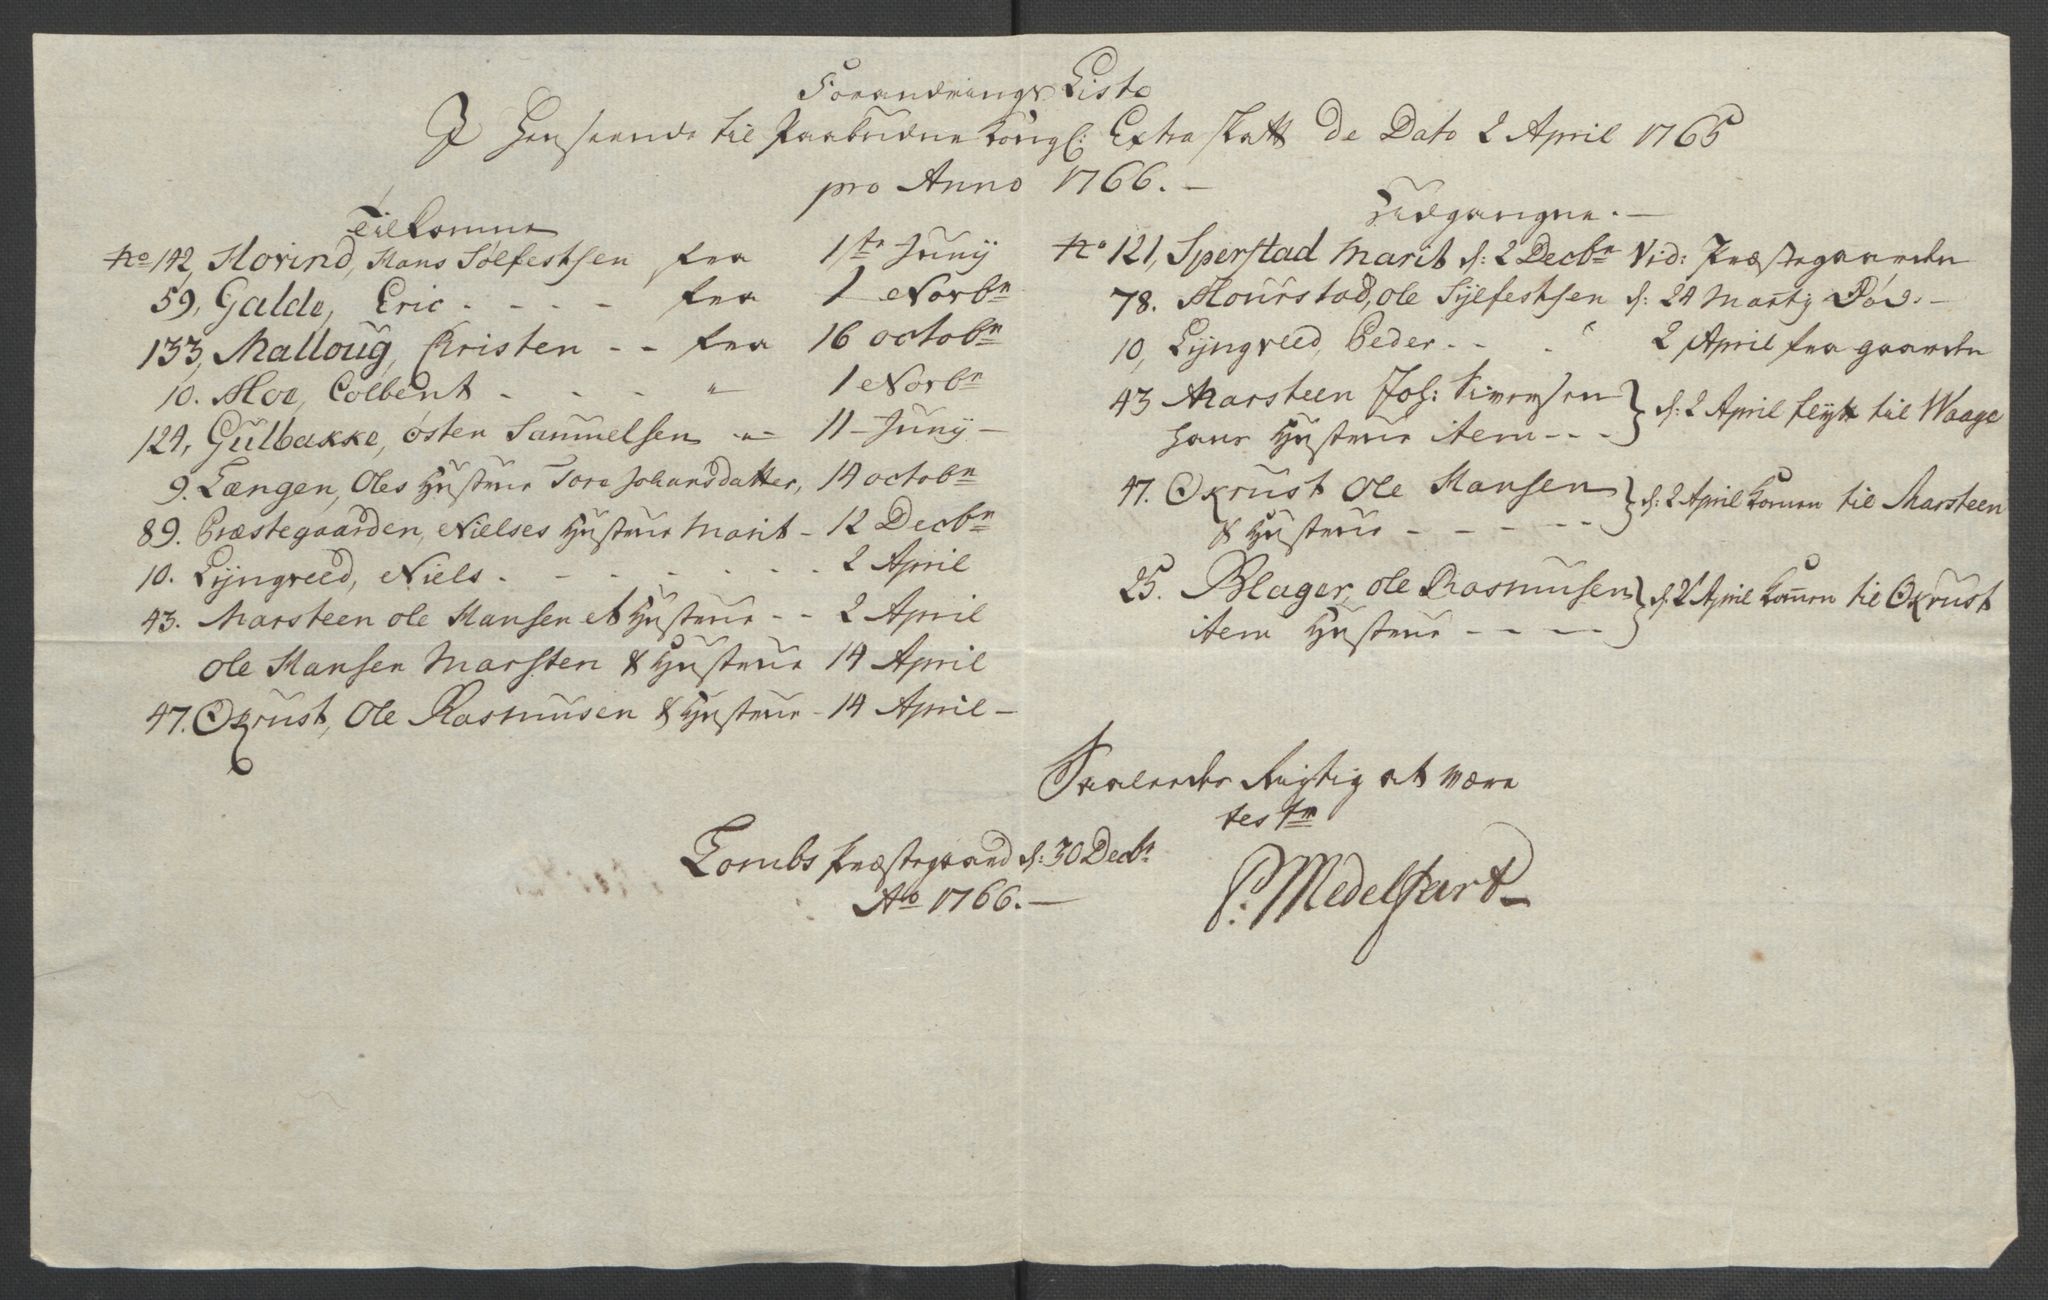 Forandrings Liste
I Henseende til Paabudne Kongl: Extra Skatt de Dato 2 April 1765
pro Anno 1766. -
Tilkomne
No 142, Hovind, Hans Sølfestsen fra 1ste Junij
59, Galde, Eric - - - - fra 1 Novbr
133, Malloug, Christen - - fra 16 octobr
10. Hoe, Colbent - - - " 1 Novbr
124, Gulbakke, østen Samuelsen " 11 - Junij -
9. Længen, Oles Hustrue Tore Johansdatter, 14 octobr
89. Præstegaarden, Nielses Hustrue Marit - 12 Decbr
10. Lyngveed, Niels - - - - - - 2 April
43. Marsteen ole Hansen et Hustrue - - 2 April
ole Hansen Marsten & Hustrue 14 April
47. Okrust, Ole Rasmusen & Hustrue - 14 April -
Udgangne. -
No 121, Sperstad Marit d: 2 Decbr Vid: Præstegaarden
78. Hourstad, ole Sylfestsen d: 24 Martij Død. -
10, Lyngveed, Peder - - - " 2 April fra gaarden
43 Marsteen Joh: Siversen } d: 2 April flyt til Waage
hans Hustrue item - - -
47. Okrust Ole Hansen } d: 2 April kommen til Marsteen
& Hustrue - - - - -
25. Blager, ole Rasmusen } d: 2 April kommen til Okrust
item Hustrue - - - -
Saaleedes Rigtig at være
tester
Lombs Præstegaard d: 30 Decbr
Ao 1766. -
P: Medelfart